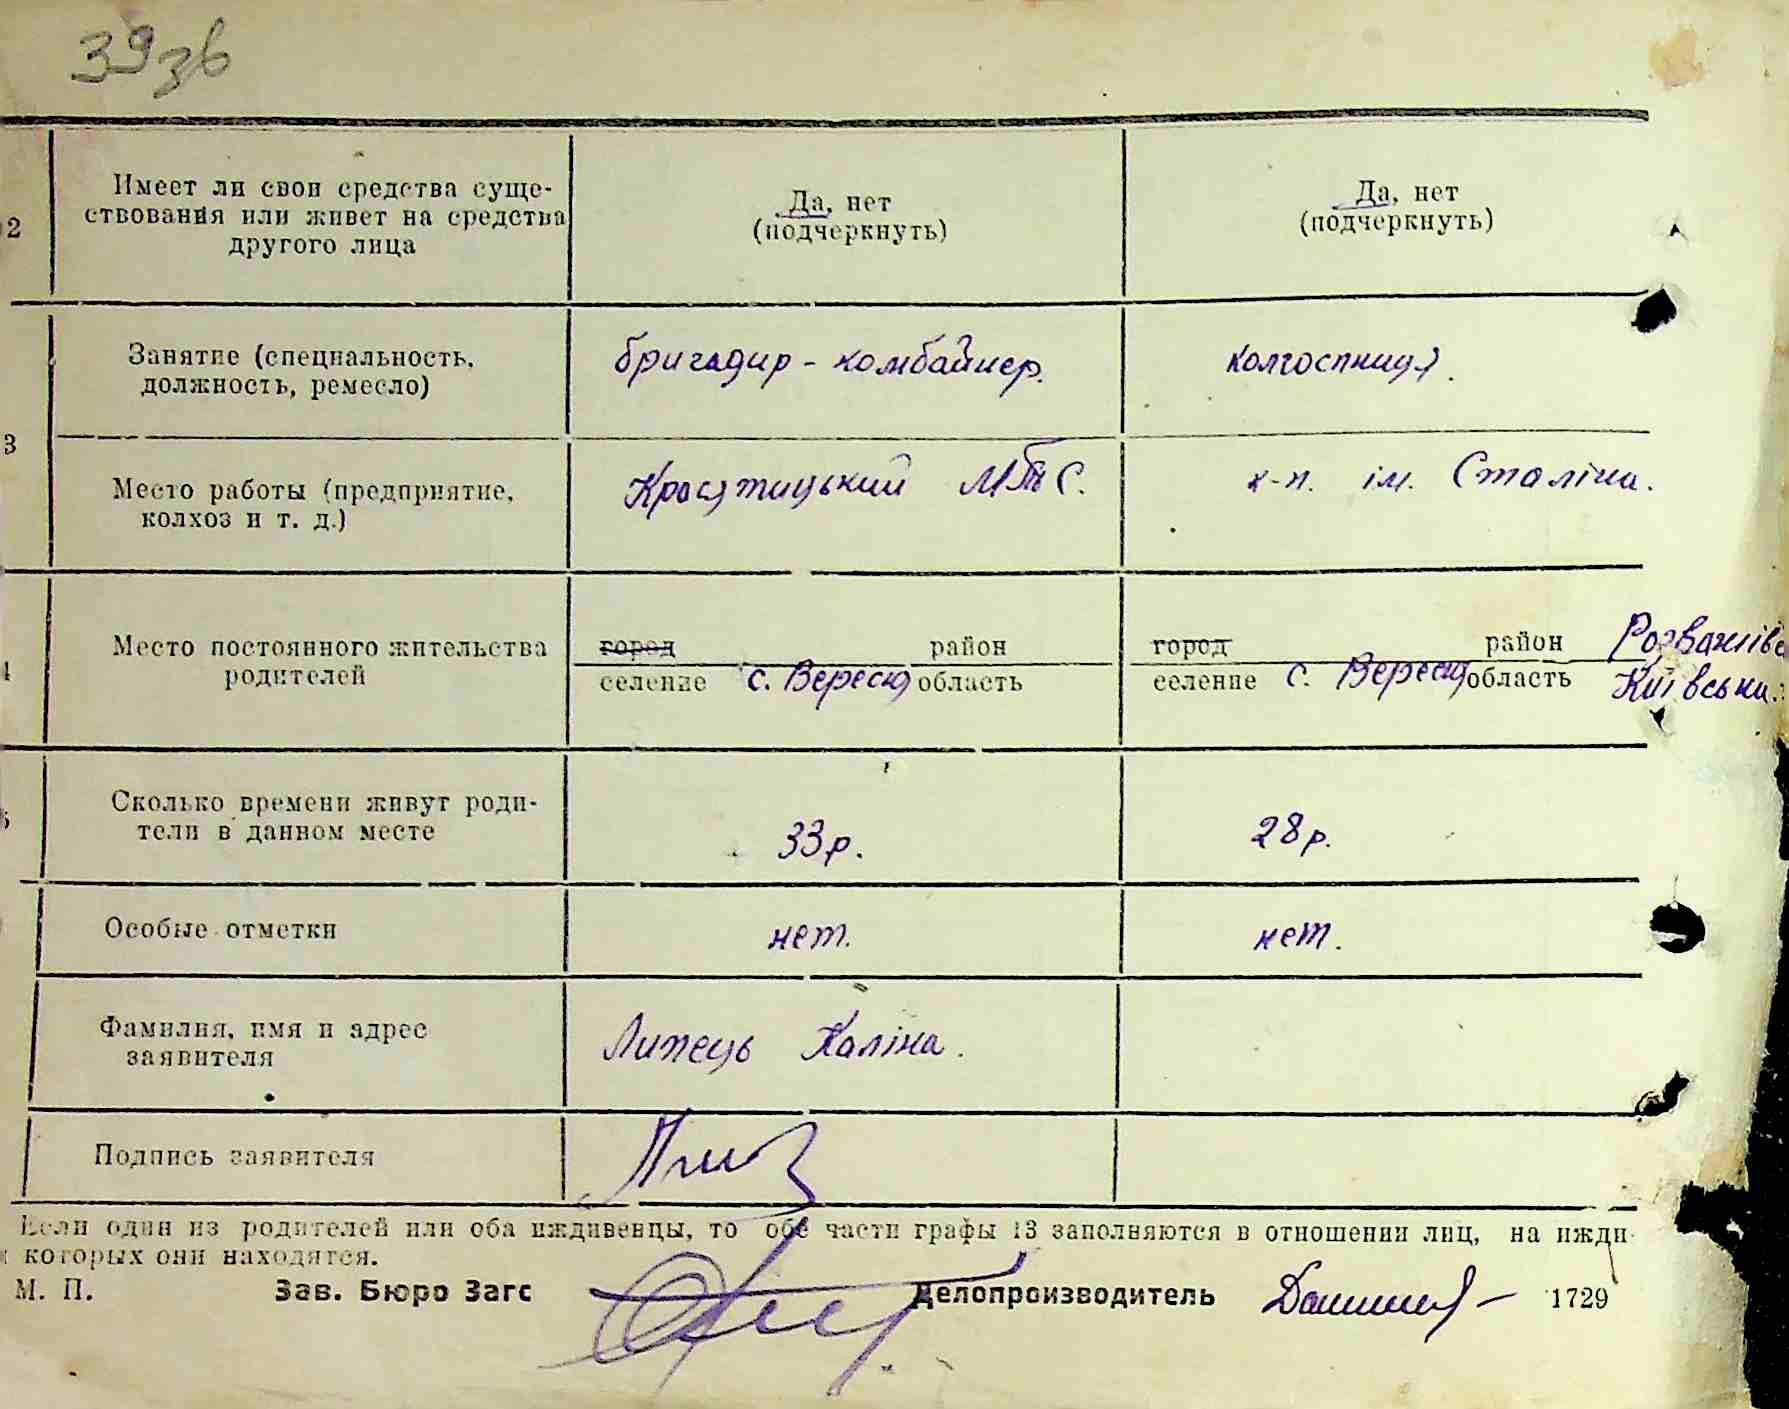 39зв
2
Имеет ли свои средства суще-
ствования или живет на средства
другого лица
Да, нет
(подчеркнуть)
Да, нет
(подчеркнуть)
3
Занятие (специальность,
должность, ремесло)
бригадир - комбайнер.
колгоспниця.
Место работы (предприятие,
колхоз и т. д.)
МТС.
к-п. ім. Сталіна.
4
Место постоянного жительства
родителей
город район
селение с. Вересня область
город район Розважівс
селение с. Вересня область Київська.
5
Сколько времени живут роди-
тели в данном месте
33р.
28р.
Особые отметки
нет.
нет.
Фамилия, имя и адрес
заявителя
Липець Каліна.
Подпись заявителя
Если один из родителей или оба иждивенцы, то обе части графы 13 заполняются в отношении лиц, на ижди-
которых они находятся.
М. П. Зав. Бюро Загс Делопроизводитель 1729